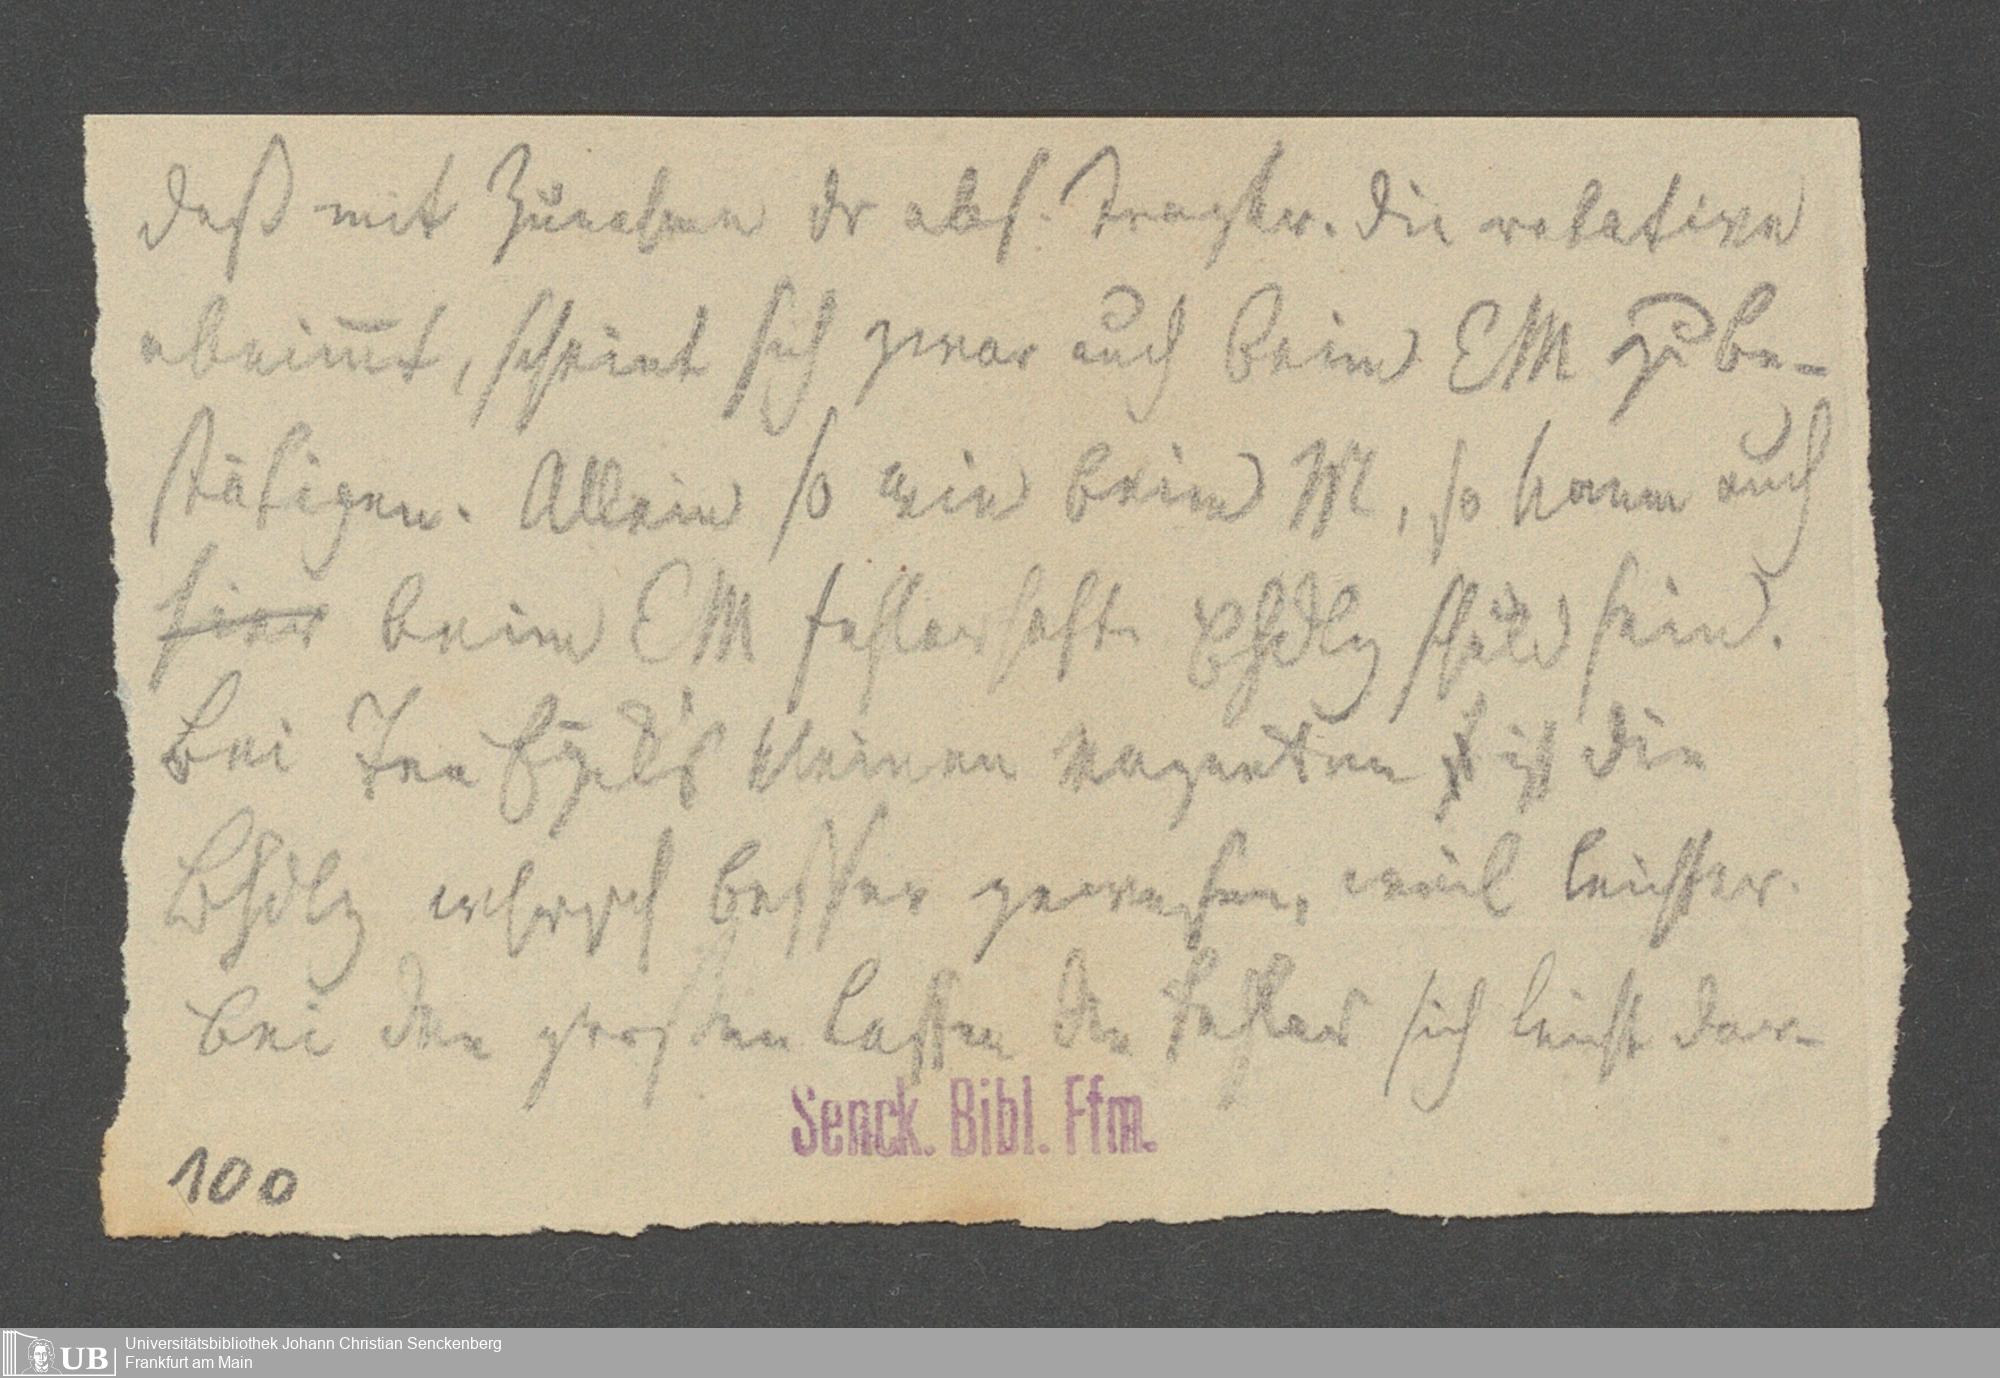 daß mit Zunehmen dr abs. Tragkr. die relative
abnim̅t, scheint sich zwar auch beim EM zu be-
stätigen. Allein so wie beim M, so kann auch
hier beim EM fehlerhafte Bhdlg schuld sein.
Bei kleinen Magneten ist die
Bhdlg besser gewesen, weil leichter.
bei den großen lassen die Fehler sich leicht dar-
Senck. Bibl. Ffm.
100
UB
Universitätsbibliothek Johann Christian Senckenberg
Frankfurt am Main